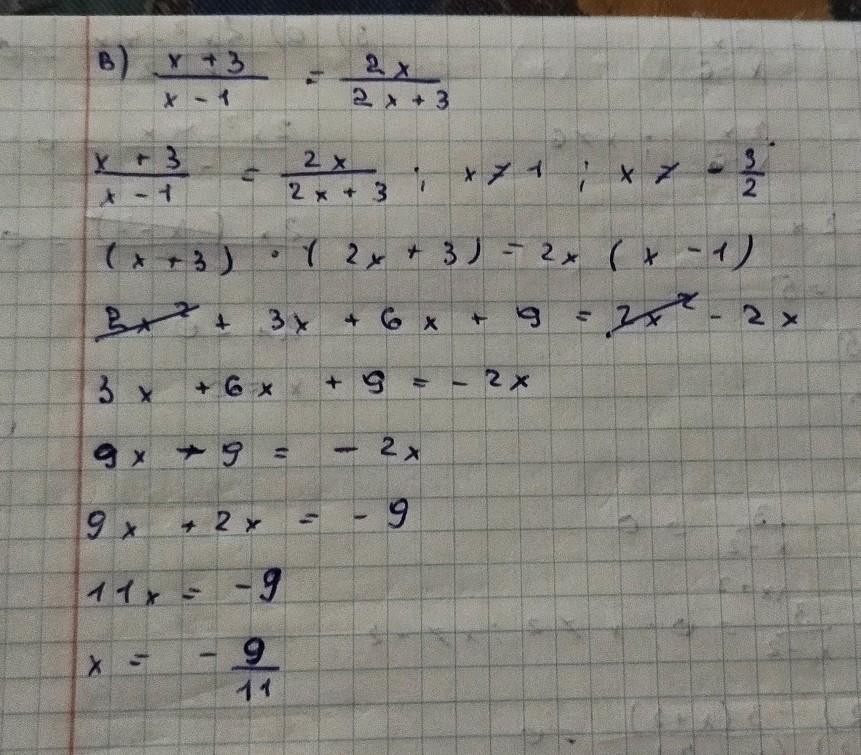 в) x + 3 / x - 1 = 2x / 2x + 3
x + 3 / x - 1 = 2x / 2x + 3 ; x ≠ 1 ; x ≠ - 3/2
(x + 3) · (2x + 3) = 2x (x - 1)
2x² + 3x + 6x + 9 = 2x² - 2x
3x + 6x + 9 = - 2x
9x + 9 = - 2x
9x + 2x = - 9
11x = - 9
x = - 9/11